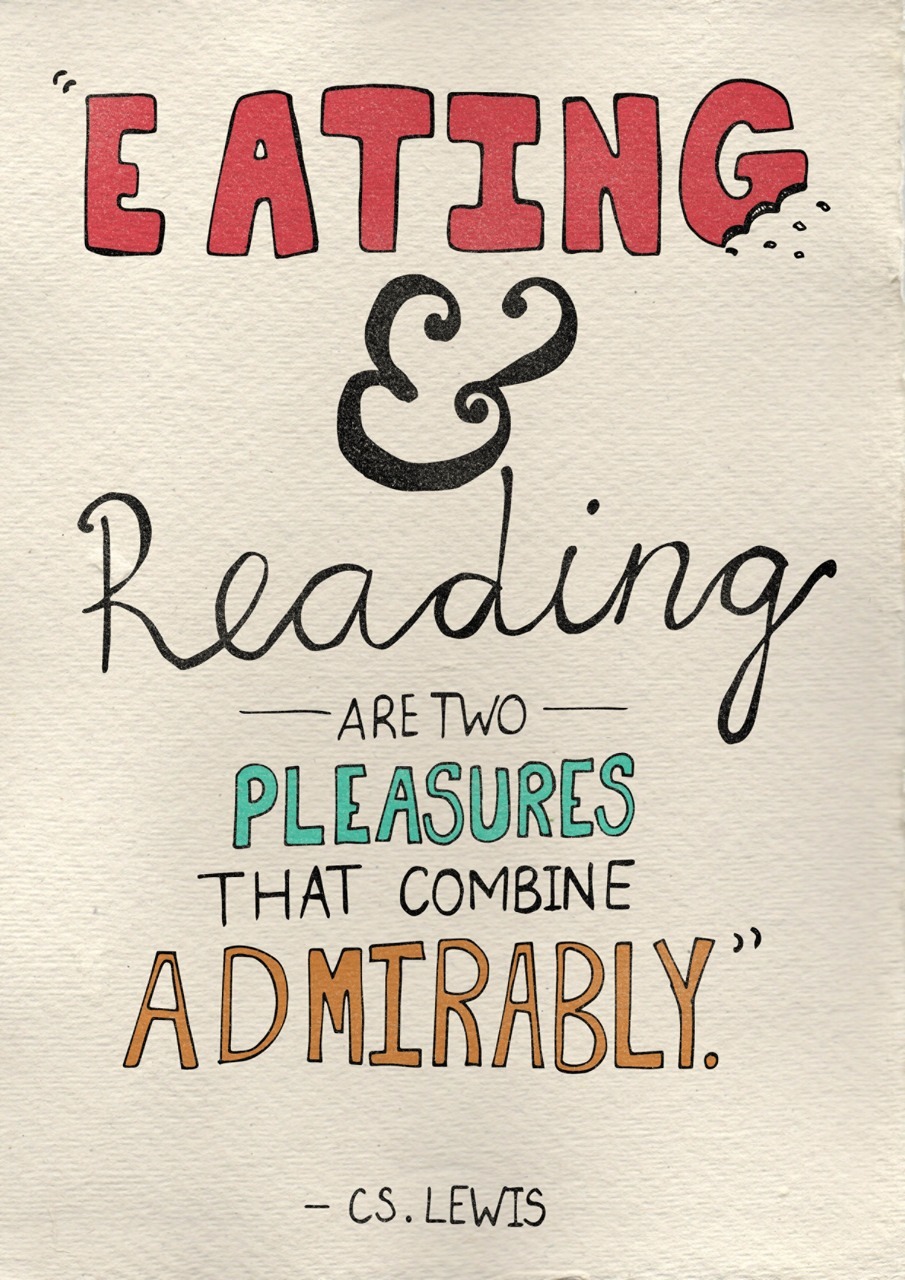 "EATING
&
Reading
— ARE TWO —
PLEASURES
THAT COMBINE
ADMIRABLY."
– CS. LEWIS